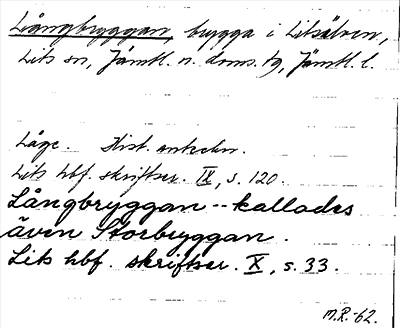 Långbryggan, brygga i Litsälven,
Lits sn, Jämtl. n. doms. tg, Jämtl. l.
Läge. Hist. anteckn.
Lits hbf. skriftser. IX, s. 120.
Långbryggan -- kallades
även Storbryggan.
Lits hbf. skriftser. X, s. 33.
M.R.-62.